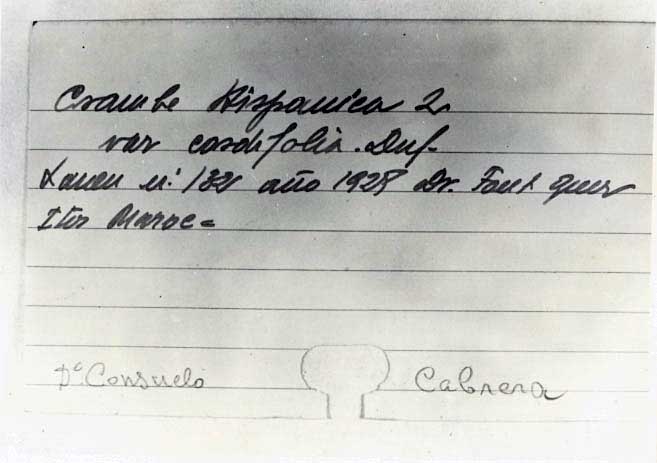 Crambe Hispanica L
var cordifolia. Duf.
nº 132 año 1928 Dr. Font Quer
Iter Maroc =
Dª Consuelo Cabrera